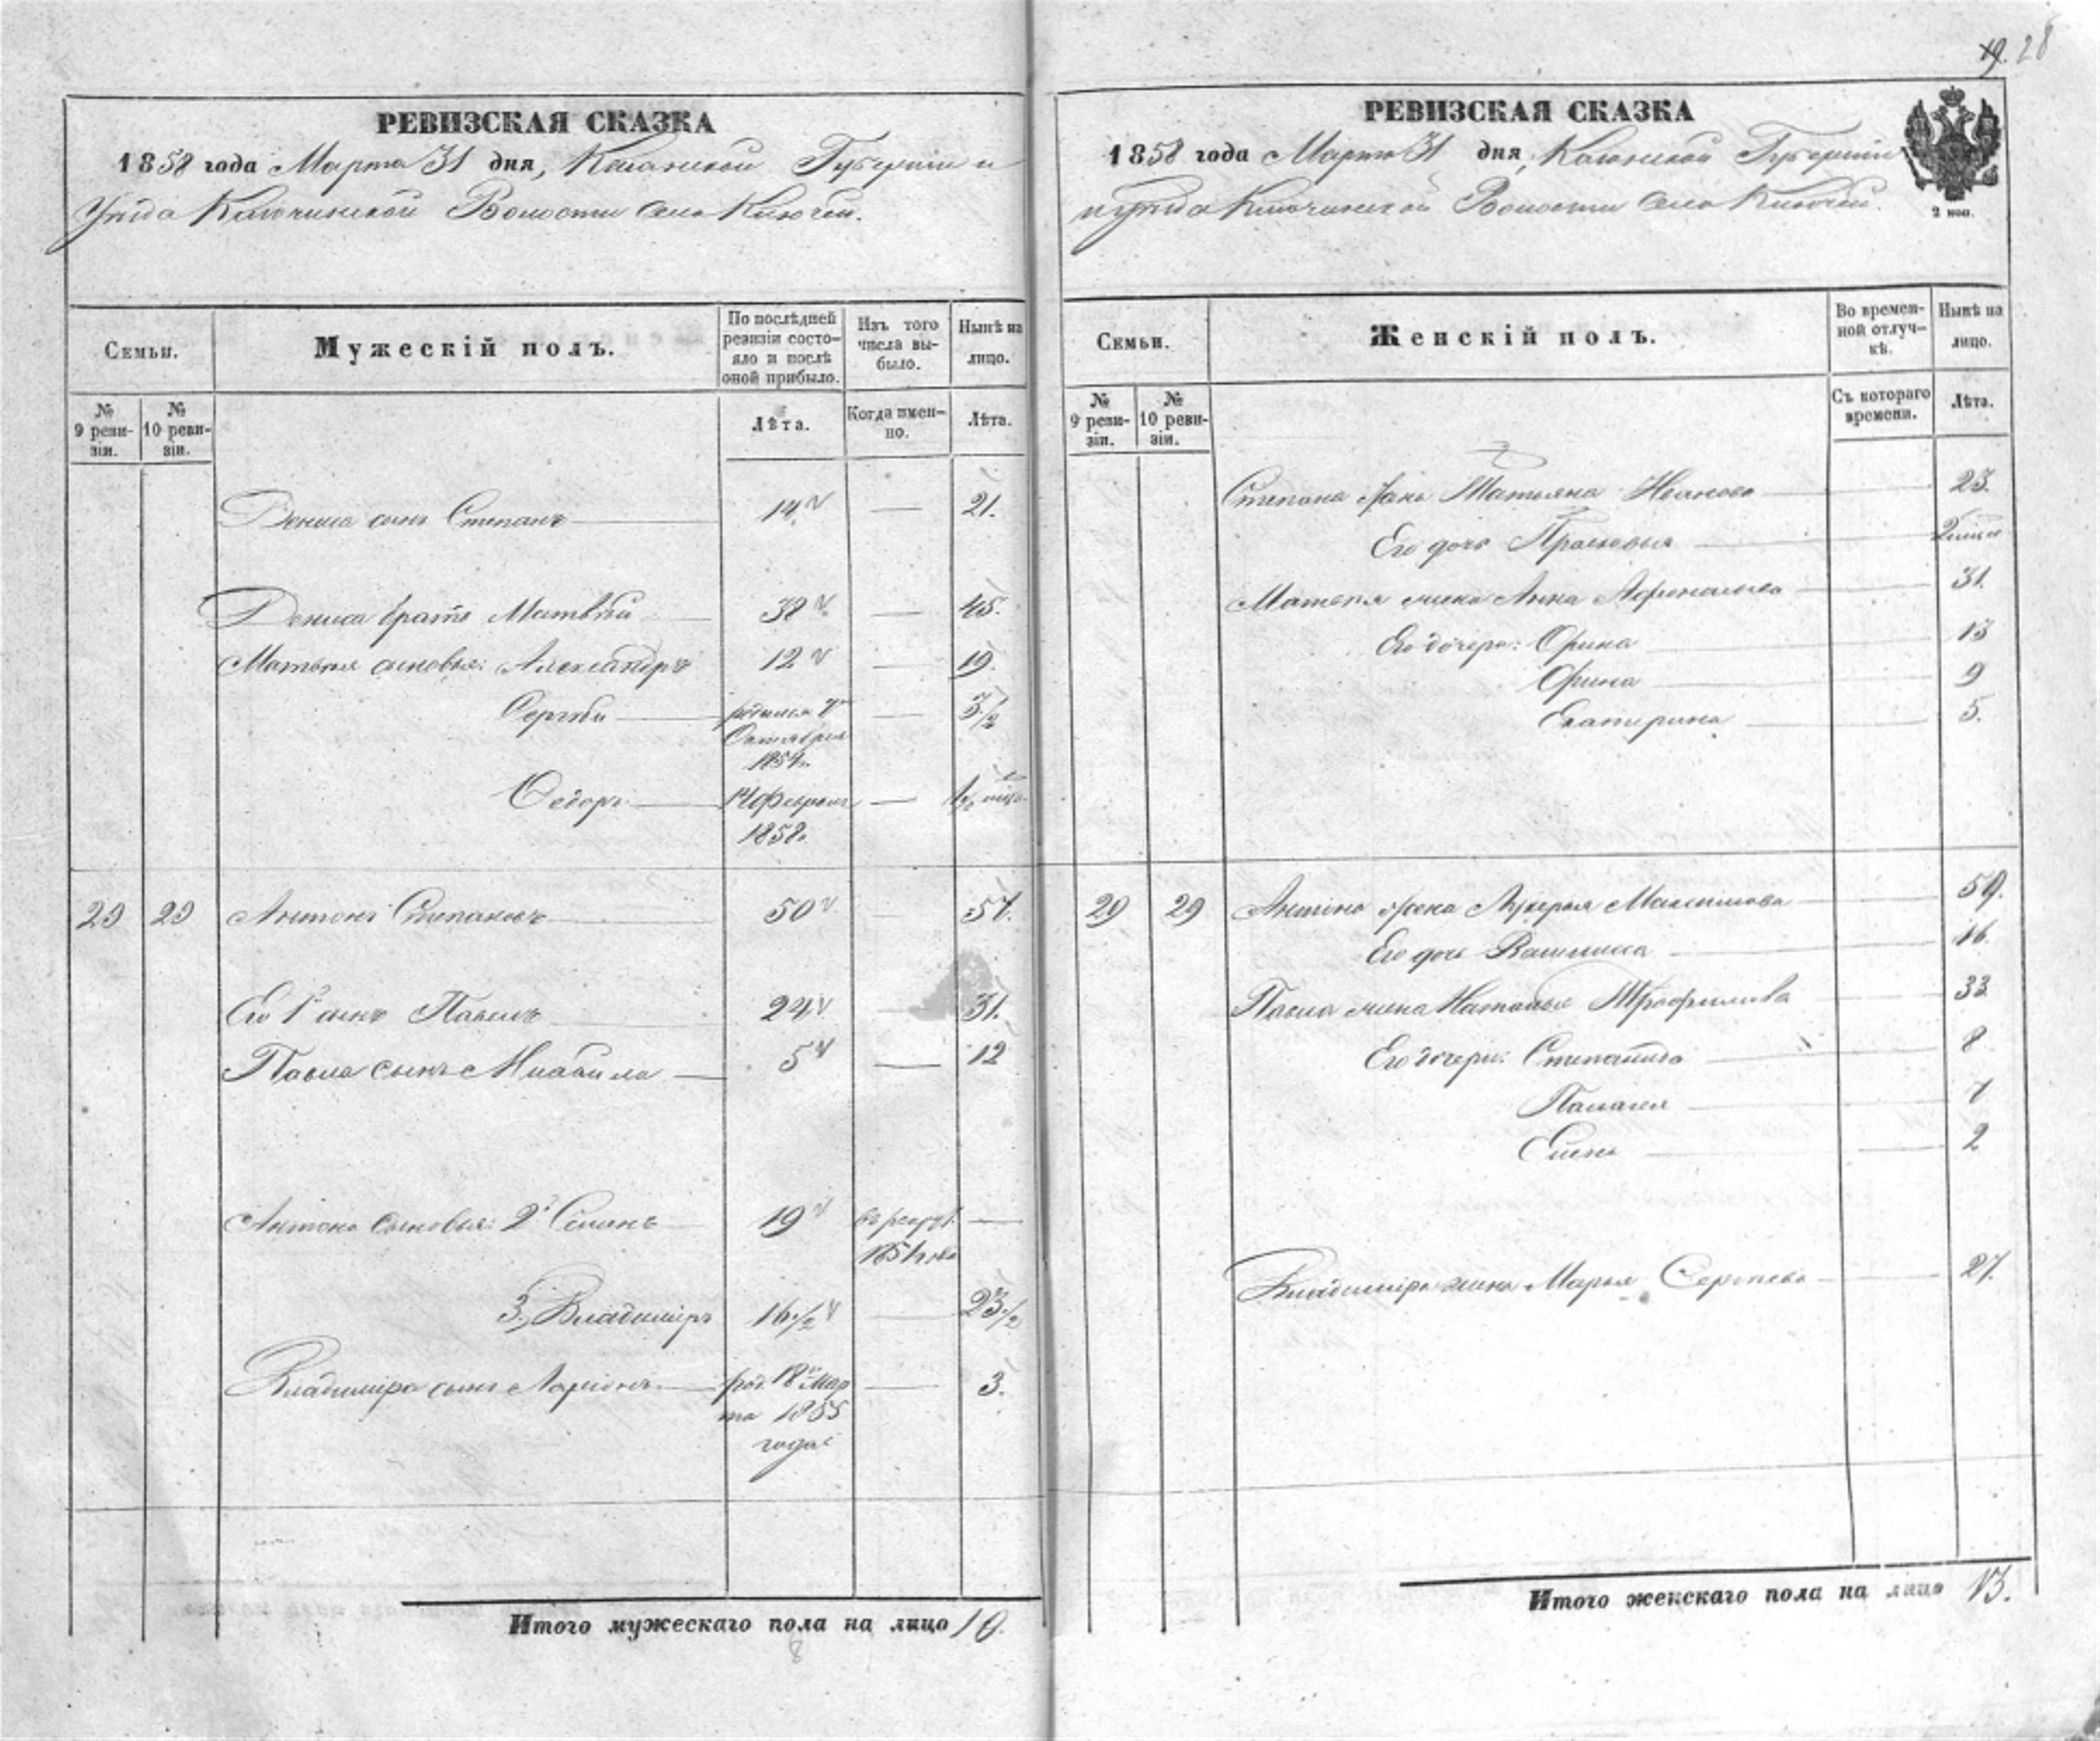 19. 28
РЕВИЗСКАЯ СКАЗКА
1858 года Марта 31 дня, Казанской Губерніи и
Уѣзда Ключинской Волости Села Ключей.
Семьи.
Мужескій полъ.
По послѣдней ревизіи состояло и послѣ оной прибыло.
Изъ того числа выбыло.
Нынѣ на лицо.
№ 9 ревизіи.
№ 10 ревизіи.
Лѣта.
Когда именно.
Лѣта.
Дениса сынъ Степанъ 14 — 21.
Дениса братъ Матвѣй 38 — 45.
Матвѣя сыновья: Александръ 12 — 19.
Сергѣй родился
Октября — 3 1/2
1854
Ѳедоръ 14 Февраля —
1858.
29 29 Антонъ Степановъ 50 57.
Его 1й сынъ Павелъ 24 — 31.
Павла сынъ 5 — 12
Антона сыновья: 2й Семенъ 19 въ рекрут. —
1854 года
3. Владиміръ 16 1/2 — 23 1/2
Владиміра сынъ Ларіонъ род. 18 Мар — 3.
та 1855
года
Итого мужескаго пола на лицо 10.
8
РЕВИЗСКАЯ СКАЗКА
1858 года Марта 31 дня, Казанской Губерніи
и уѣзда Ключинской Волости Села Ключей.
2 коп.
Семьи.
Женскій полъ.
Во временной отлучкѣ.
Нынѣ на лицо.
№ 9 ревизіи.
№ 10 ревизіи.
Съ котораго времени.
Лѣта.
Степана жена Татьяна Иванова 23.
Его дочь Прасковья
Матвѣя жена Анна 31.
Его дочери: Орина 13
Орина 9
Екатерина 5.
29 29 Антона жена Лукерья Максимова 59.
Его дочь 16.
Павла жена Наталья Трофимова 33
Его дочери: Степанида 8
Палагея 7
Елена 2
Владиміра жена Марья Сергѣева 27.
Итого женскаго пола на лицо 13.